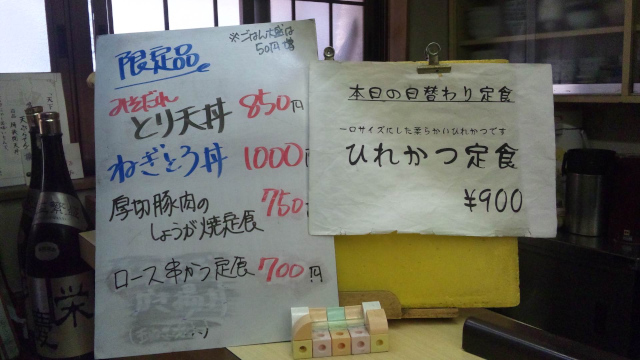 限定品
※ごはん大盛は
50円増
みそだれ
とり天丼 850円
ねぎとろ丼 1000円
厚切豚肉の
しょうが焼定食 750
ロース串かつ定食 700円
本日の日替わり定食
一口サイズにした柔らかいひれかつです
ひれかつ定食
¥900